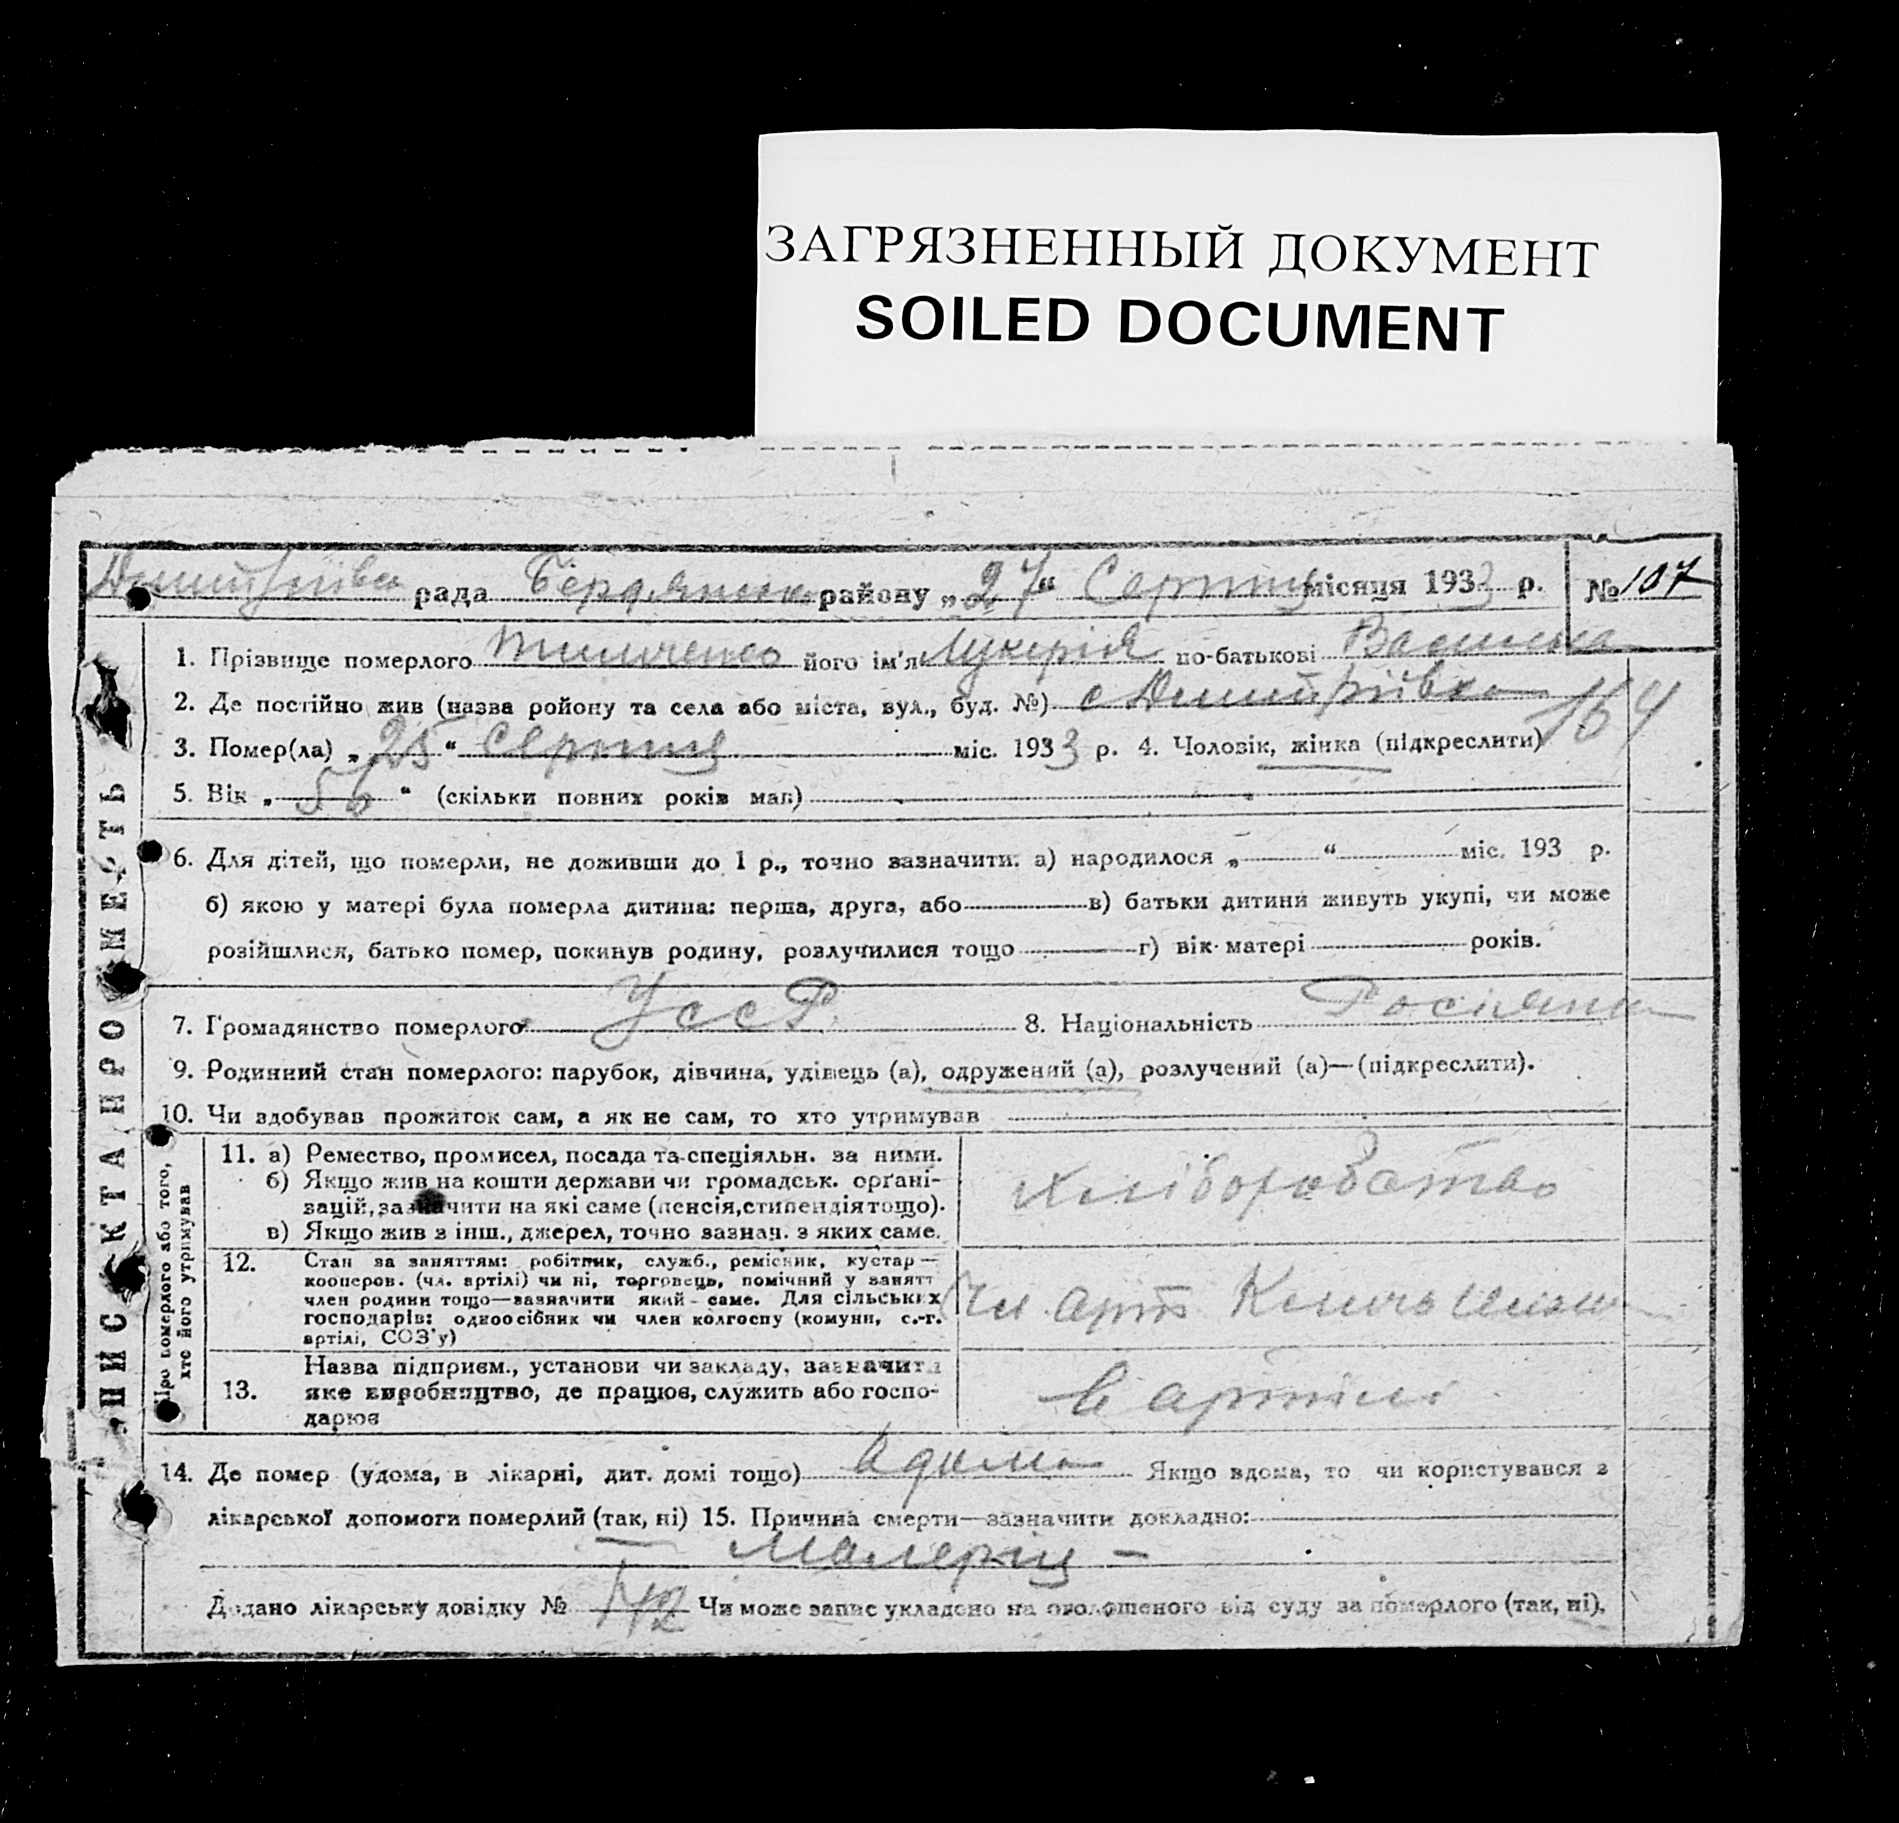 ЗАГРЯЗНЕННЫЙ ДОКУМЕНТ
SOILED DOCUMENT
рада Бердянсько району „27“ Серпня місяця 1933 р. № 107
1. Прізвище померлого його ім'я Лукерія по-батькові
2. Де постійно жив (назва ройону та села або міста, вул., буд. №) с Дмитрівка 164
3. Помер(ла) „25“ Серпня міс. 1933 р. 4. Чоловік, жінка (підкреслити)
5. Вік „56“ (скільки повних років мав)
6. Для дітей, що померли, не доживши до 1 р., точно зазначити: а) народилося „ “ міс. 193 р.
б) якою у матері була померла дитина: перша, друга, або в) батьки дитини живуть укупі, чи може
розійшлися, батько помер, покинув родину, розлучилися тощо г) вік матері років.
7. Громадянство померлого УССР. 8. Національність Росіянка
9. Родинний стан померлого: парубок, дівчина, удівець (а), одружений (а), розлучений (а)—(підкреслити).
10. Чи здобував прожиток сам, а як не сам, то хто утримував
ПИС КТА ПРО СМЕРТЬ
Про померлого або того,
хто його утримував
11. а) Ремество, промисел, посада та спеціяльн. за ними.
б) Якщо жив на кошти держави чи громадськ. орґані-
зацій, зазначити на які саме (пенсія, стипендія тощо).
в) Якщо жив з інш., джерел, точно зазнач. з яких саме.
хліборобство
12. Стан за заняттям: робітник, служб., ремісник, кустар—
кооперов. (чл. артілі) чи ні, торговець, помічний у занятт
член родини тощо—зазначити який-саме. Для сільських
господарів: одноосібник чи член колгоспу (комуни, с.-г.
артілі, СОЗ'у)
Чл. арт
13. Назва підприєм., установи чи закладу, зазначити
яке виробництво, де працює, служить або госпо-
дарює
в артілі
14. Де помер (удома, в лікарні, дит. домі тощо) вдома Якщо вдома, то чи користувався з
лікарської допомоги померлий (так, ні) 15. Причина смерти—зазначити докладно:
— Малерія —
Додано лікарську довідку № Чи може запис укладено на оголошеного від суду за померлого (так, ні).